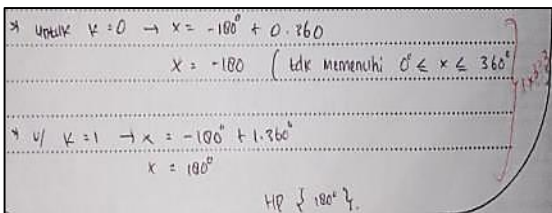 * untuk k = 0 → x = -180° + 0.360
x = -180 ( tdk memenuhi 0° ≤ x ≤ 360°
* u/ k = 1 → x = -180° + 1.360°
x = 180°
HP { 180° }.